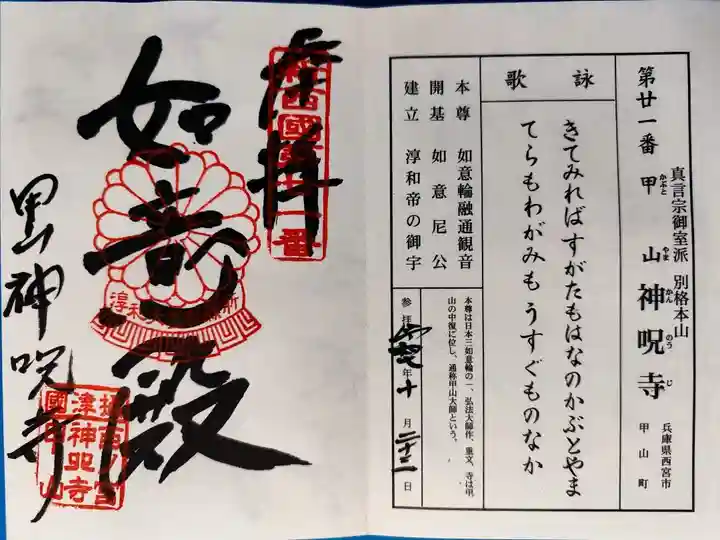 第廿一番
甲山神呪寺
かぶと やま かん のう じ
真言宗御室派 別格本山
兵庫県西宮市
甲山町
詠歌
きてみればすがたもはなのかぶとやま
てらもわがみもうすぐものなか
本尊 如意輪融通観音
開基 如意尼公
建立 淳和帝の御宇
本尊は日本三如意輪の一、弘法大師作、重文、寺は甲
山の中復に位し、通称甲山大師という。
参拝 年十月二十二日
奉拝
如意殿
甲山神呪寺